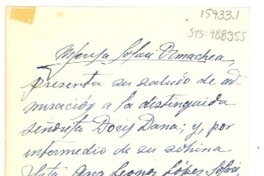 15933.1
SYS: 988355
Marya Sofari Dimachea,
presenta su saludo de ad-
miración a la distinguida
señorita Doris Dana; y, por
intermedio de su sobrina
Ana Leonor López Sofari,